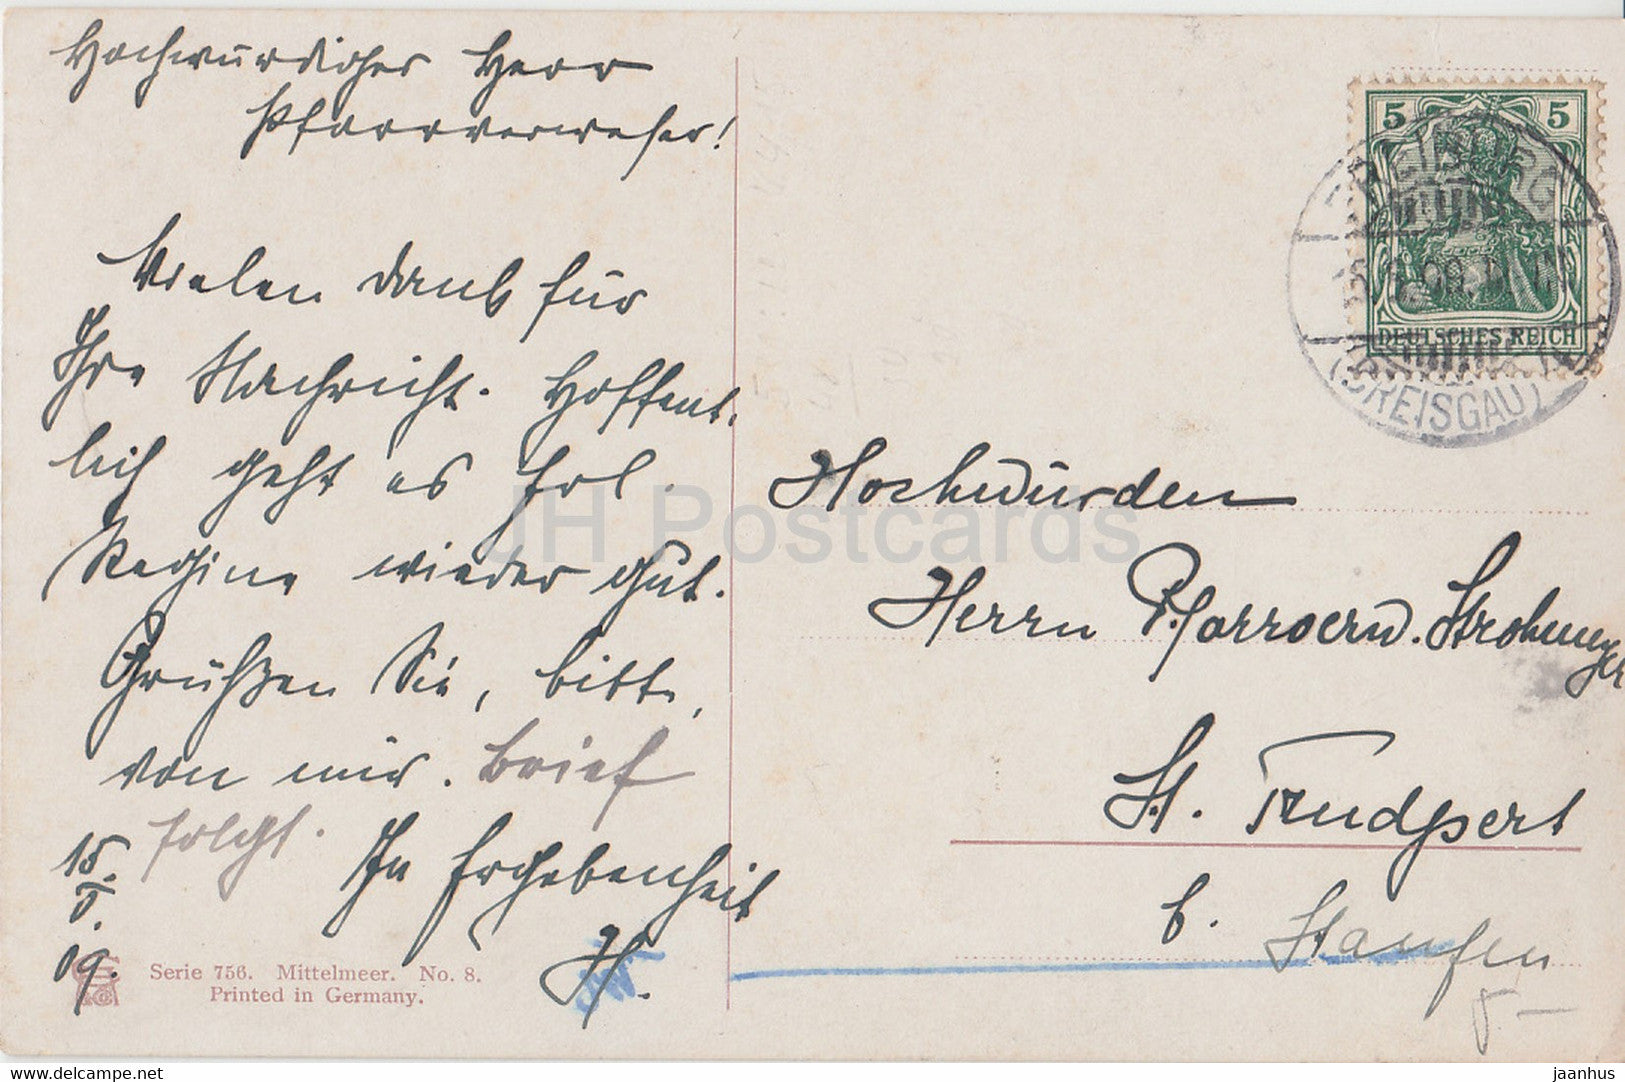 Hochwürdiger Herr
Pfarrverweser!
Vielen Dank für
Ihre Nachricht. Hoffent-
lich geht es Frl.
Regine wieder gut.
Grüßen Sie, bitte,
von mir. Brief
folgt. In Ergebenheit
H.
15.
V.
09.
Serie 756. Mittelmeer. No. 8.
Printed in Germany.
5 5
DEUTSCHES REICH
FREIBURG
(BREISGAU)
Hochwürden
Herrn Pfarrverw. Strohmeyer
St. Trudpert
b. Staufen
JH Postcards
www.jhpostcards.com
jaanhus